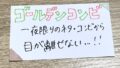 ゴールデンコンビ
一夜限りのネタ・コンビから
目が離せない…!!